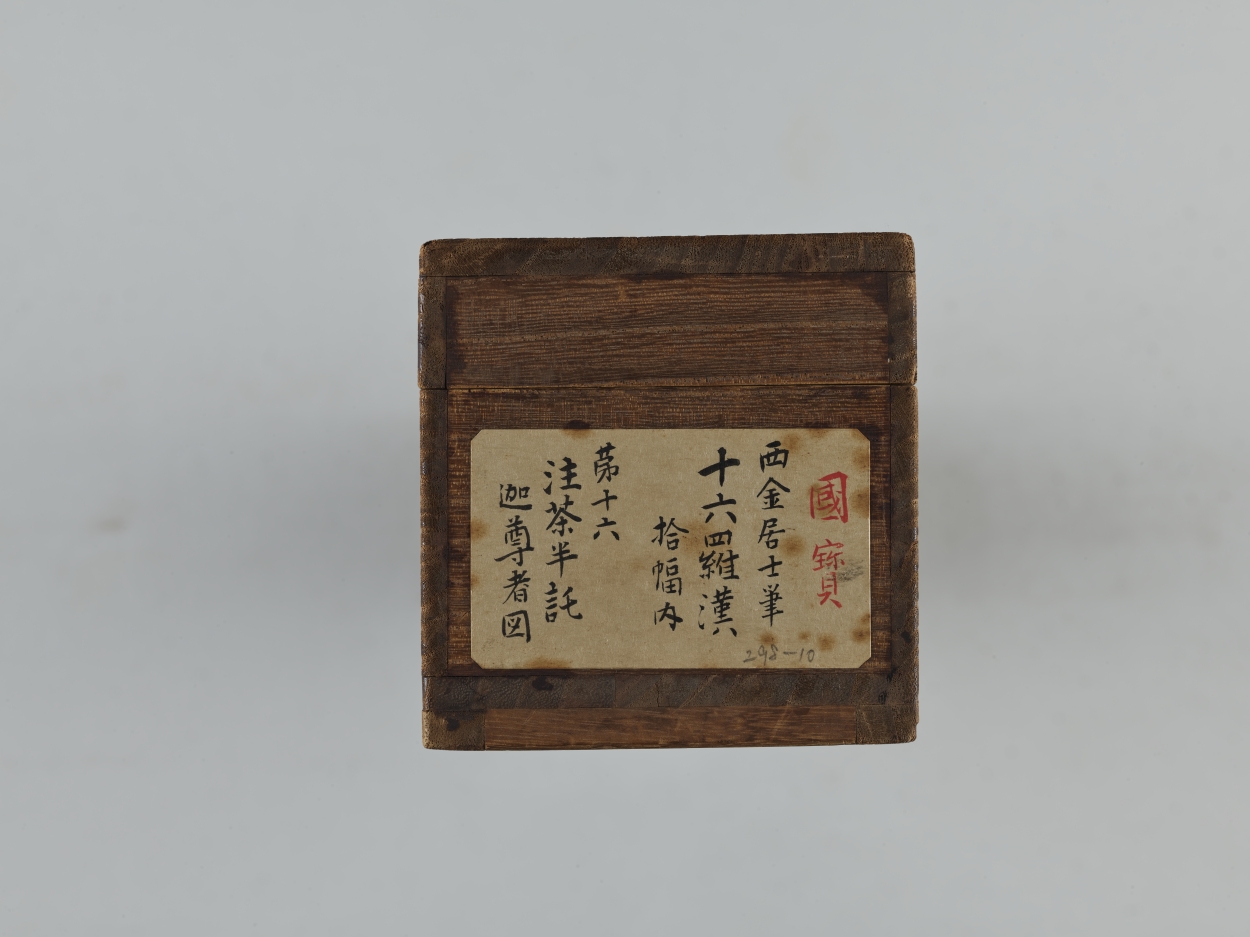 國寳
西金居士筆
十六羅漢
拾幅内
第十六
注荼半託
迦尊者図
298-10